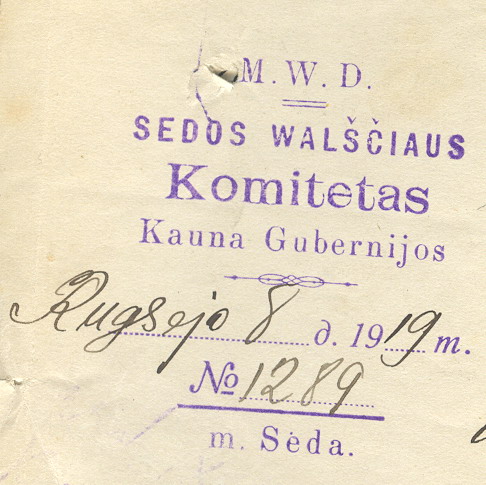 M. W. D.
SEDOS WALŠČIAUS
Komitetas
Kauna Gubernijos
Rugsejo 8 d. 1919 m.
№ 1289
m. Sėda.